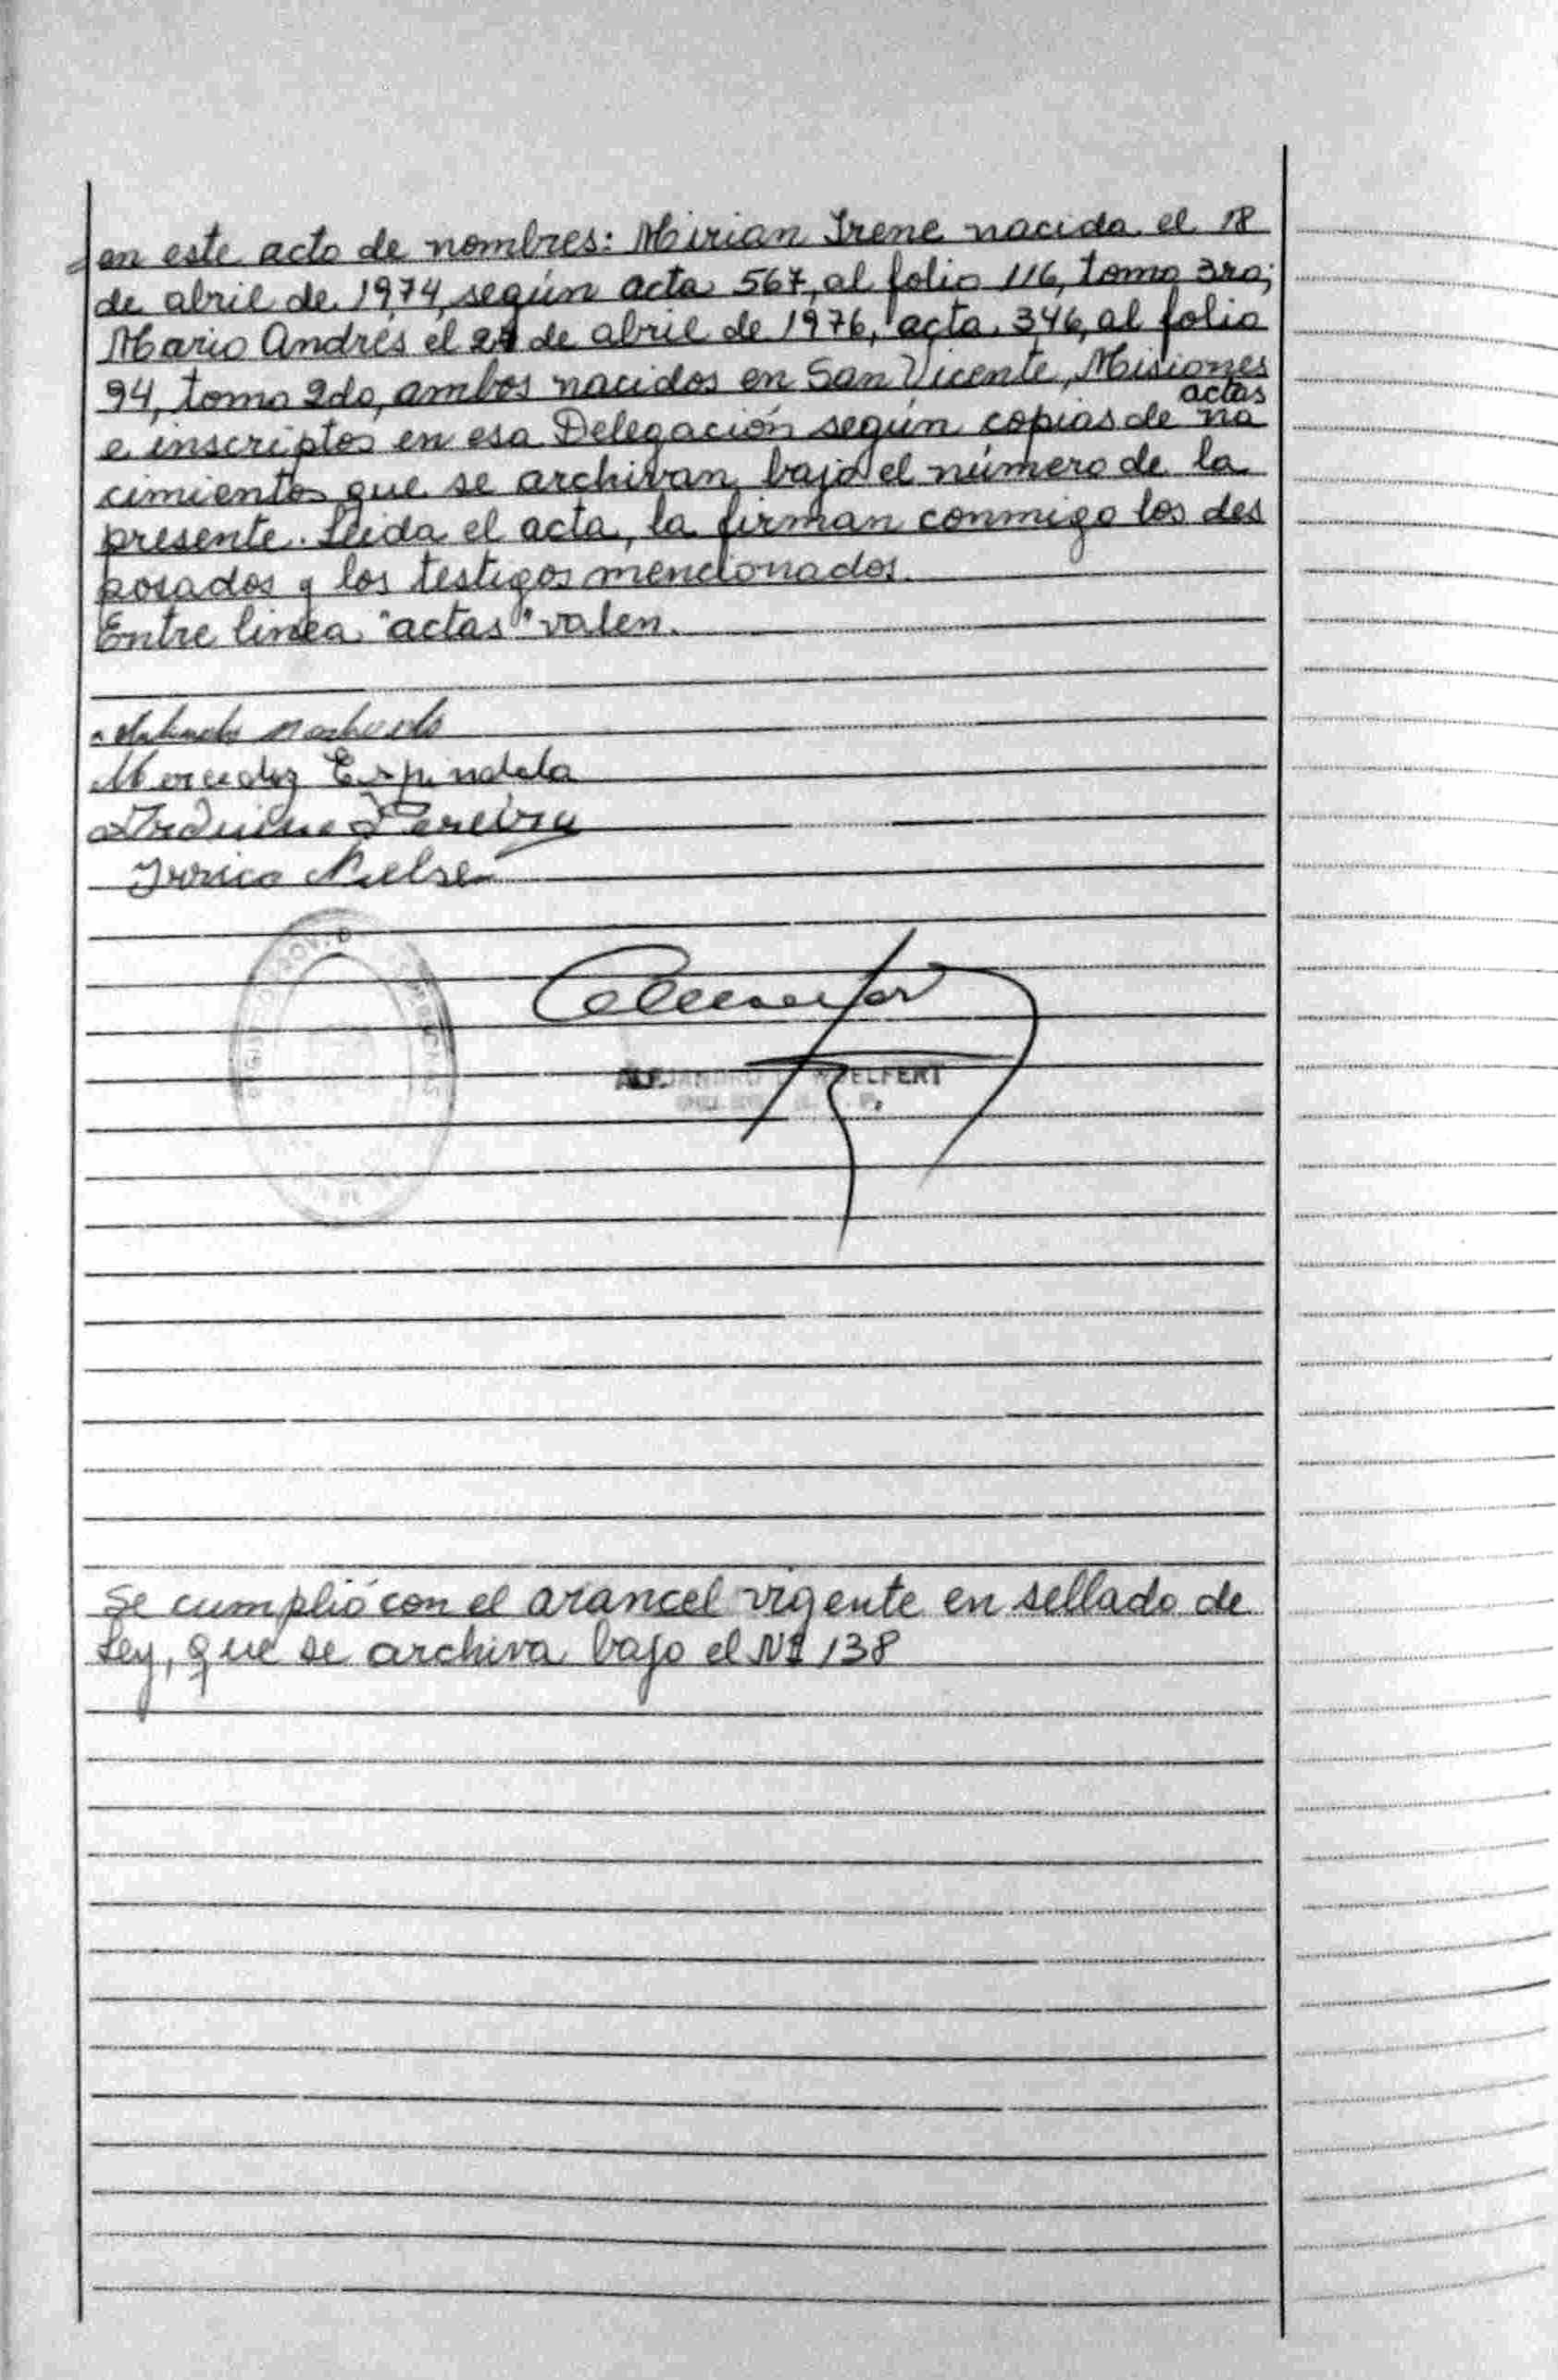 en este acto de nombres: Mirian Irene nacida el 18
de abril de 1974, según acta 567, al folio 116, tomo 3ro;
Mario Andrés el de abril de 1976, acta 346, al folio
94, tomo 2do, ambos nacidos en San Vicente, Misiones
actas
e inscriptos en esa Delegación según copias de na
cimientos que se archivan bajo el número de la
presente. Leida el acta, la firman conmigo los des
posados y los testigos mencionados.
Entre linea "actas" valen.
Machado
Mercedez Espindola
Pereira
Nielsen
ALEJANDRO WOELFERT
Se cumplió con el arancel vigente en sellado de
Ley, que se archiva bajo el Nº 138